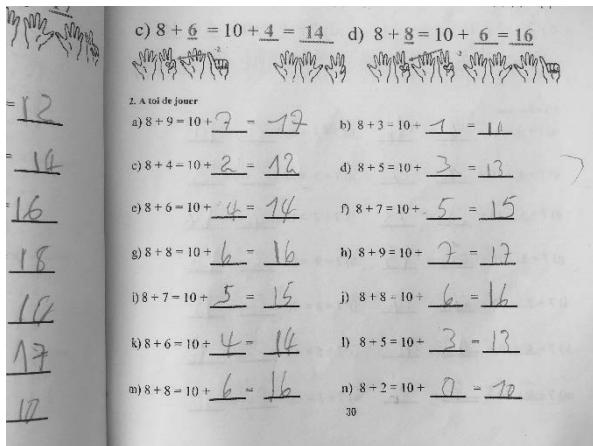 c) 8 + 6 = 10 + 4 = 14 d) 8 + 8 = 10 + 6 = 16
-2 -2
2. A toi de jouer
a) 8 + 9 = 10 + 7 = 17 b) 8 + 3 = 10 + 1 = 11
c) 8 + 4 = 10 + 2 = 12 d) 8 + 5 = 10 + 3 = 13
e) 8 + 6 = 10 + 4 = 14 f) 8 + 7 = 10 + 5 = 15
g) 8 + 8 = 10 + 6 = 16 h) 8 + 9 = 10 + 7 = 17
i) 8 + 7 = 10 + 5 = 15 j) 8 + 8 = 10 + 6 = 16
k) 8 + 6 = 10 + 4 = 14 l) 8 + 5 = 10 + 3 = 13
m) 8 + 8 = 10 + 6 = 16 n) 8 + 2 = 10 + 0 = 10
30
= 12
= 14
= 16
18
17
10